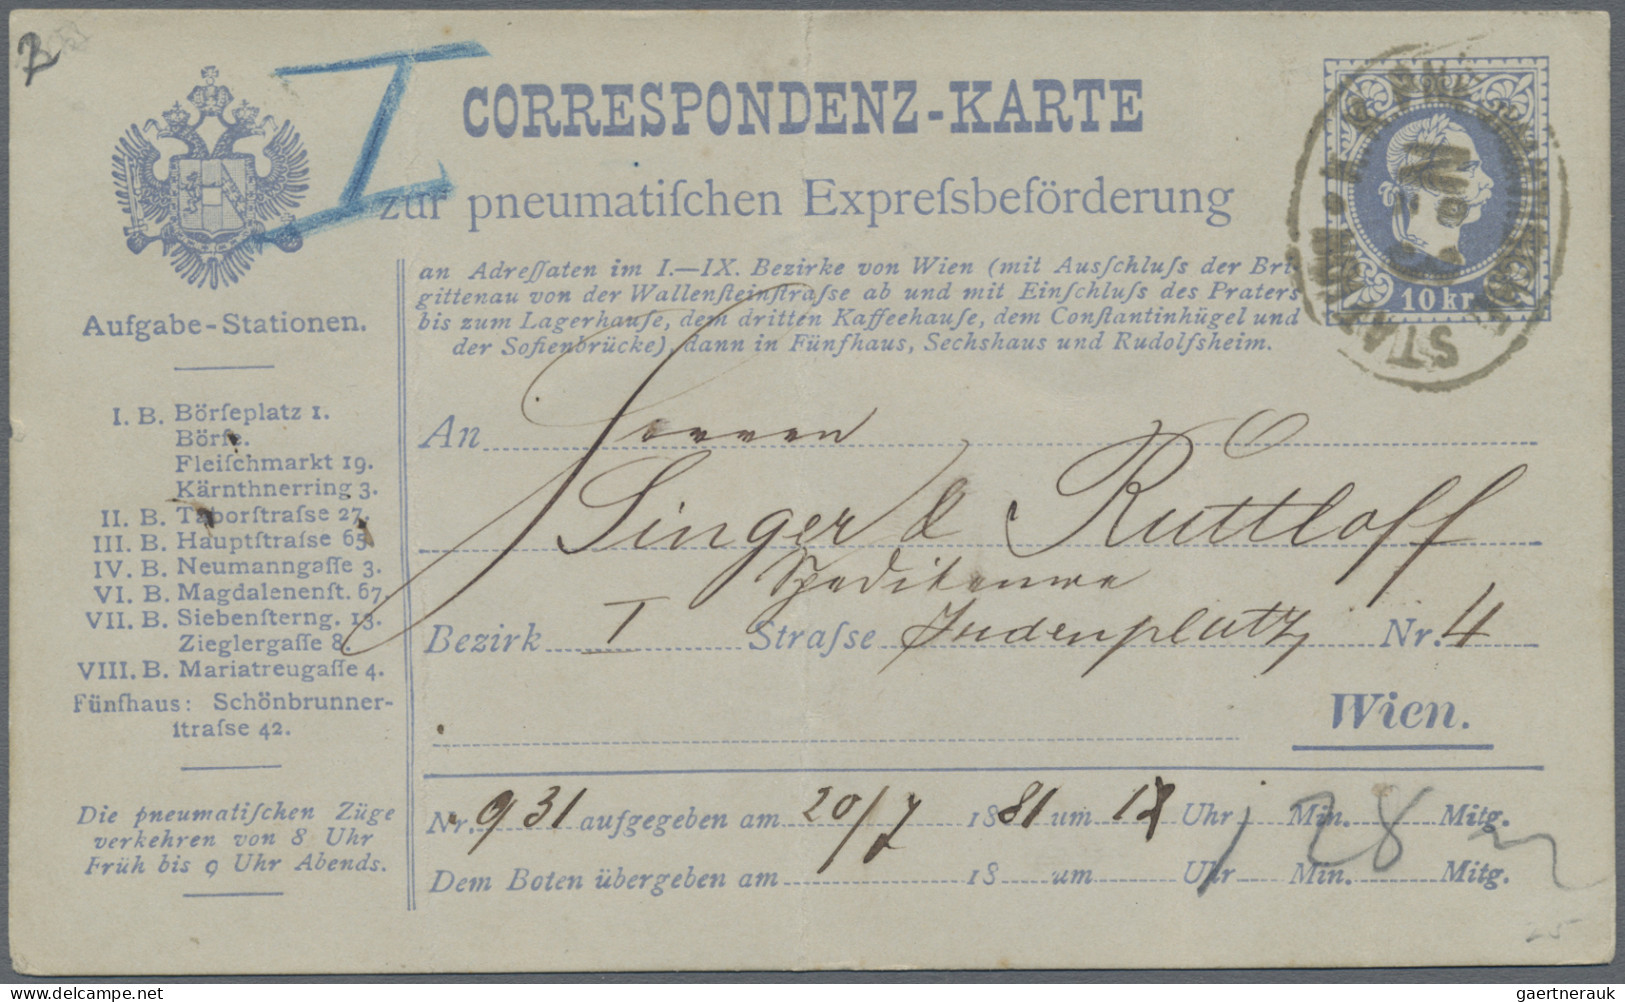 I
CORRESPONDENZ-KARTE
zur pneumatiſchen Expreſsbeförderung
an Adreſſaten im I.—IX. Bezirke von Wien (mit Ausſchluſs der Bri-
gittenau von der Wallenſteinſtraſse ab und mit Einſchluſs des Praters
bis zum Lagerhauſe, dem dritten Kaffeehauſe, dem Conſtantinhügel und
der Sofienbrücke), dann in Fünfhaus, Sechshaus und Rudolfsheim.
10 kr.
Aufgabe-Stationen.
I. B. Börſeplatz 1.
Börſe.
Fleiſchmarkt 19.
Kärnthnerring 3.
II. B. Taborſtraſse 27.
III. B. Hauptſtraſse 65.
IV. B. Neumanngaſſe 3.
VI. B. Magdalenenſt. 67.
VII. B. Siebenſterng. 13.
Zieglergaſſe 8.
VIII. B. Mariatreugaſſe 4.
Fünfhaus: Schönbrunner-
ſtraſse 42.
Die pneumatiſchen Züge
verkehren von 8 Uhr
Früh bis 9 Uhr Abends.
An Herren
Singer & Ruttloff
Spediteure
Bezirk I Straſse Judenplatz Nr. 4
Wien.
Nr. 931 aufgegeben am 20/7 1881 um 12 Uhr Min. Mitg.
1 28
Dem Boten übergeben am 18 um Uhr Min. Mitg.
25
www.delcampe.net
gaertnerauk